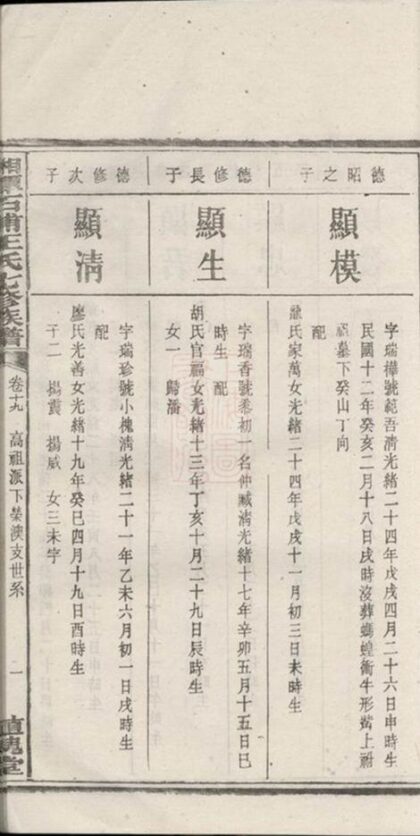 德昭之子
顯模
字瑞樺號範吾清光緒二十四年戊戌四月二十六日申時生
民國十二年癸亥二月十八日戌時沒葬螞蝗衝牛形嘴上祔
祖墓下癸山丁向
配
氏家萬女光緒二十四年戊戌十一月初三日未時生
德修長子
顯生
字瑞香號悉初一名仲臧清光緒十七年辛卯五月十五日巳
時生 配
胡氏官福女光緒十三年丁亥十月二十九日辰時生
女一 歸潘
德修次子
顯清
字瑞珍號小槐清光緒二十一年乙未六月初一日戌時生
配
廖氏光善女光緒十九年癸巳四月十九日酉時生
子二 揚震 揚威 女三未字
湘潭石浦王氏七修族譜
卷十九 高祖派下榮澳支世系 一
植槐堂